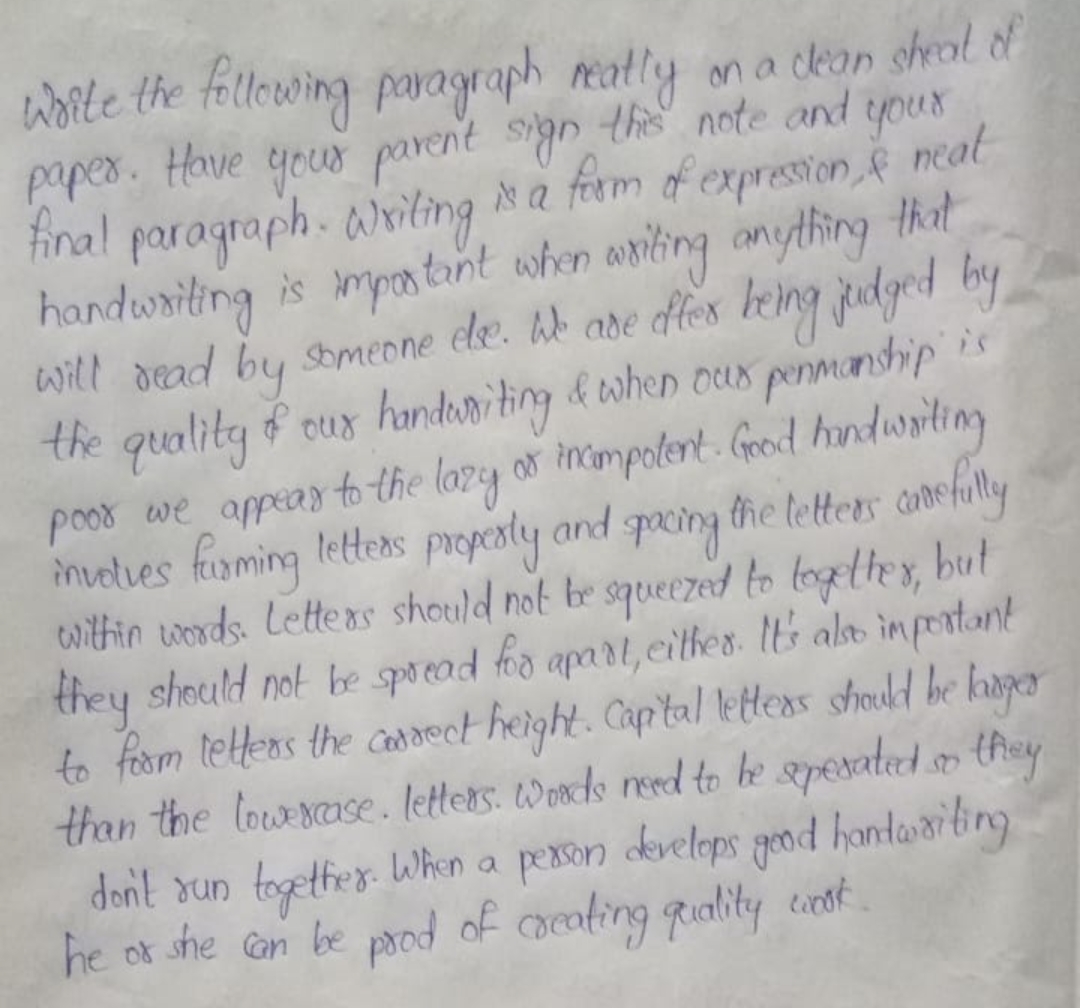 Write the following paragraph neatly on a clean sheat of
paper. Have your parent sign this note and your
final paragraph. Writing is a form of expression, & neat
handwriting is important when writing anything that
will read by someone else. We are offer being judged by
the quality of our handwriting & when our penmanship is
poor we appear to the lazy or incompotent. Good handwriting
involves furming letters properly and spacing the letters carefully
within words. Letters should not be squeezed to together, but
they should not be spread for apart, either. It's also important
to form letters the correct height. Capital letters should be larger
than the lowercase. letters. Words need to be seperated so they
don't run together. When a person develops good handwriting
he or she can be prod of creating quality work.